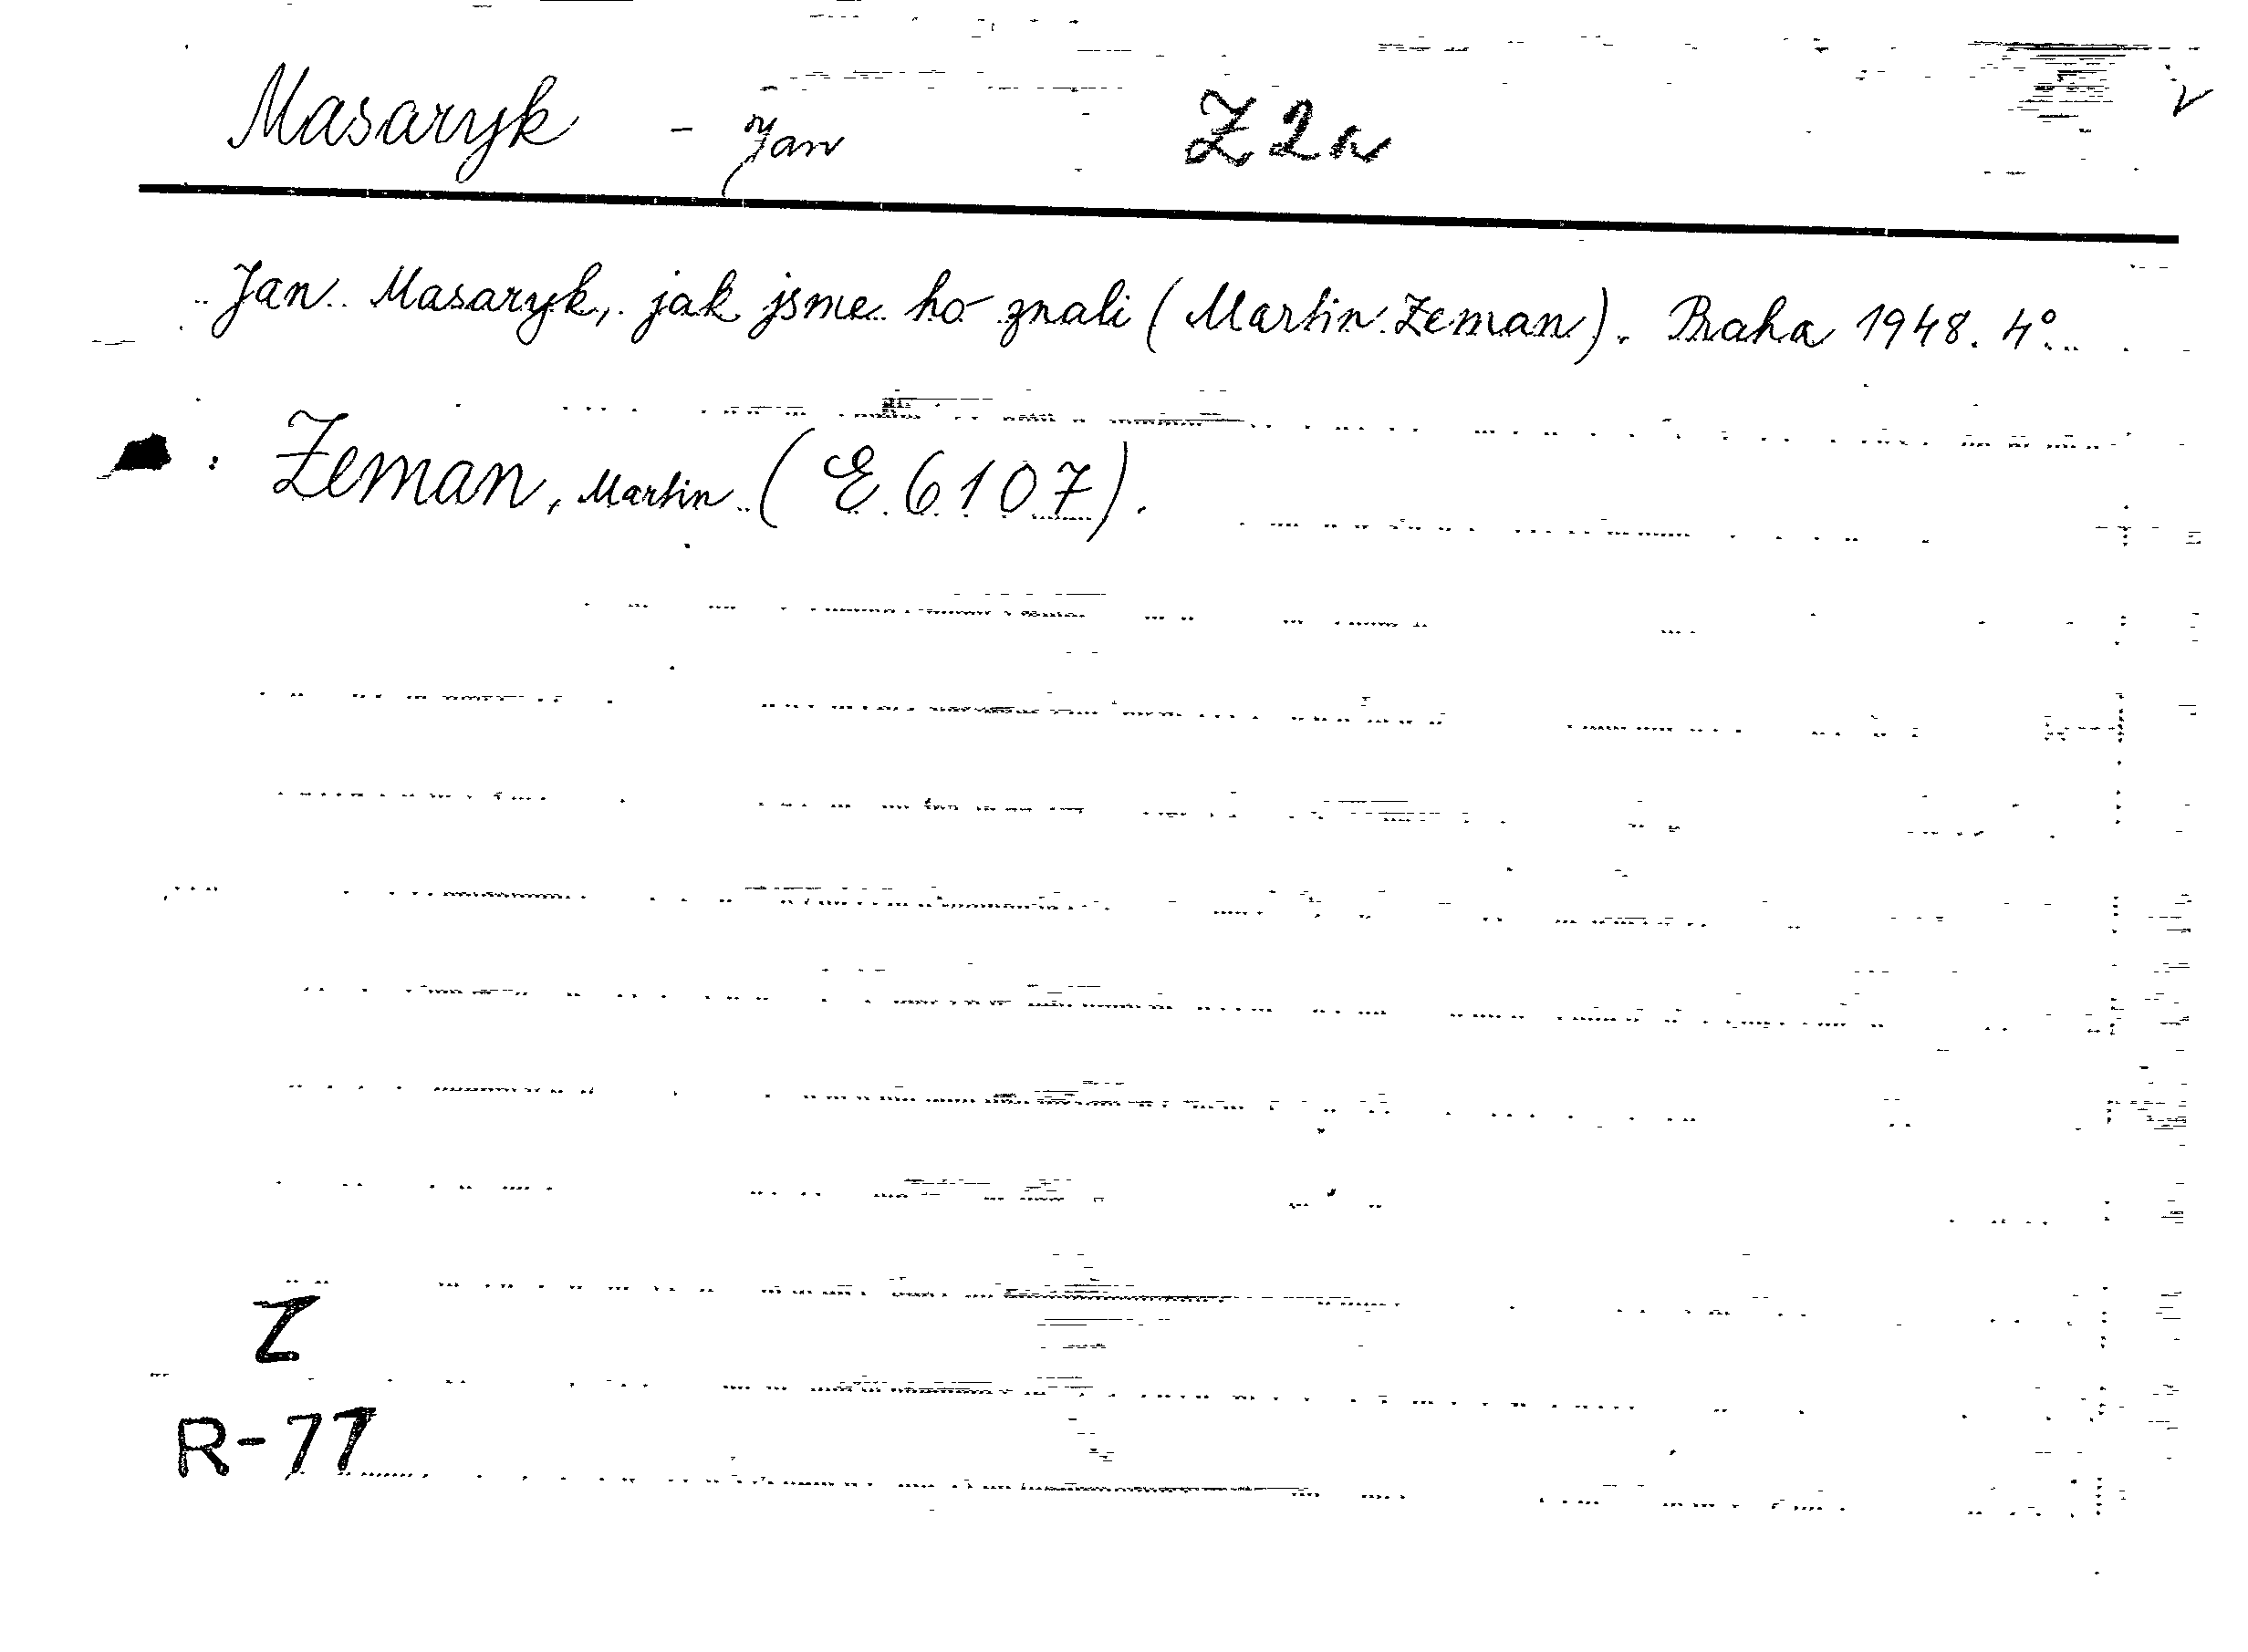 Masaryk - Jan Z2a
Jan Masaryk, jak jsme ho znali (Martin Zeman). Praha 1948. 4°.
: Zeman, Martin (E 6107).
Z
R-77